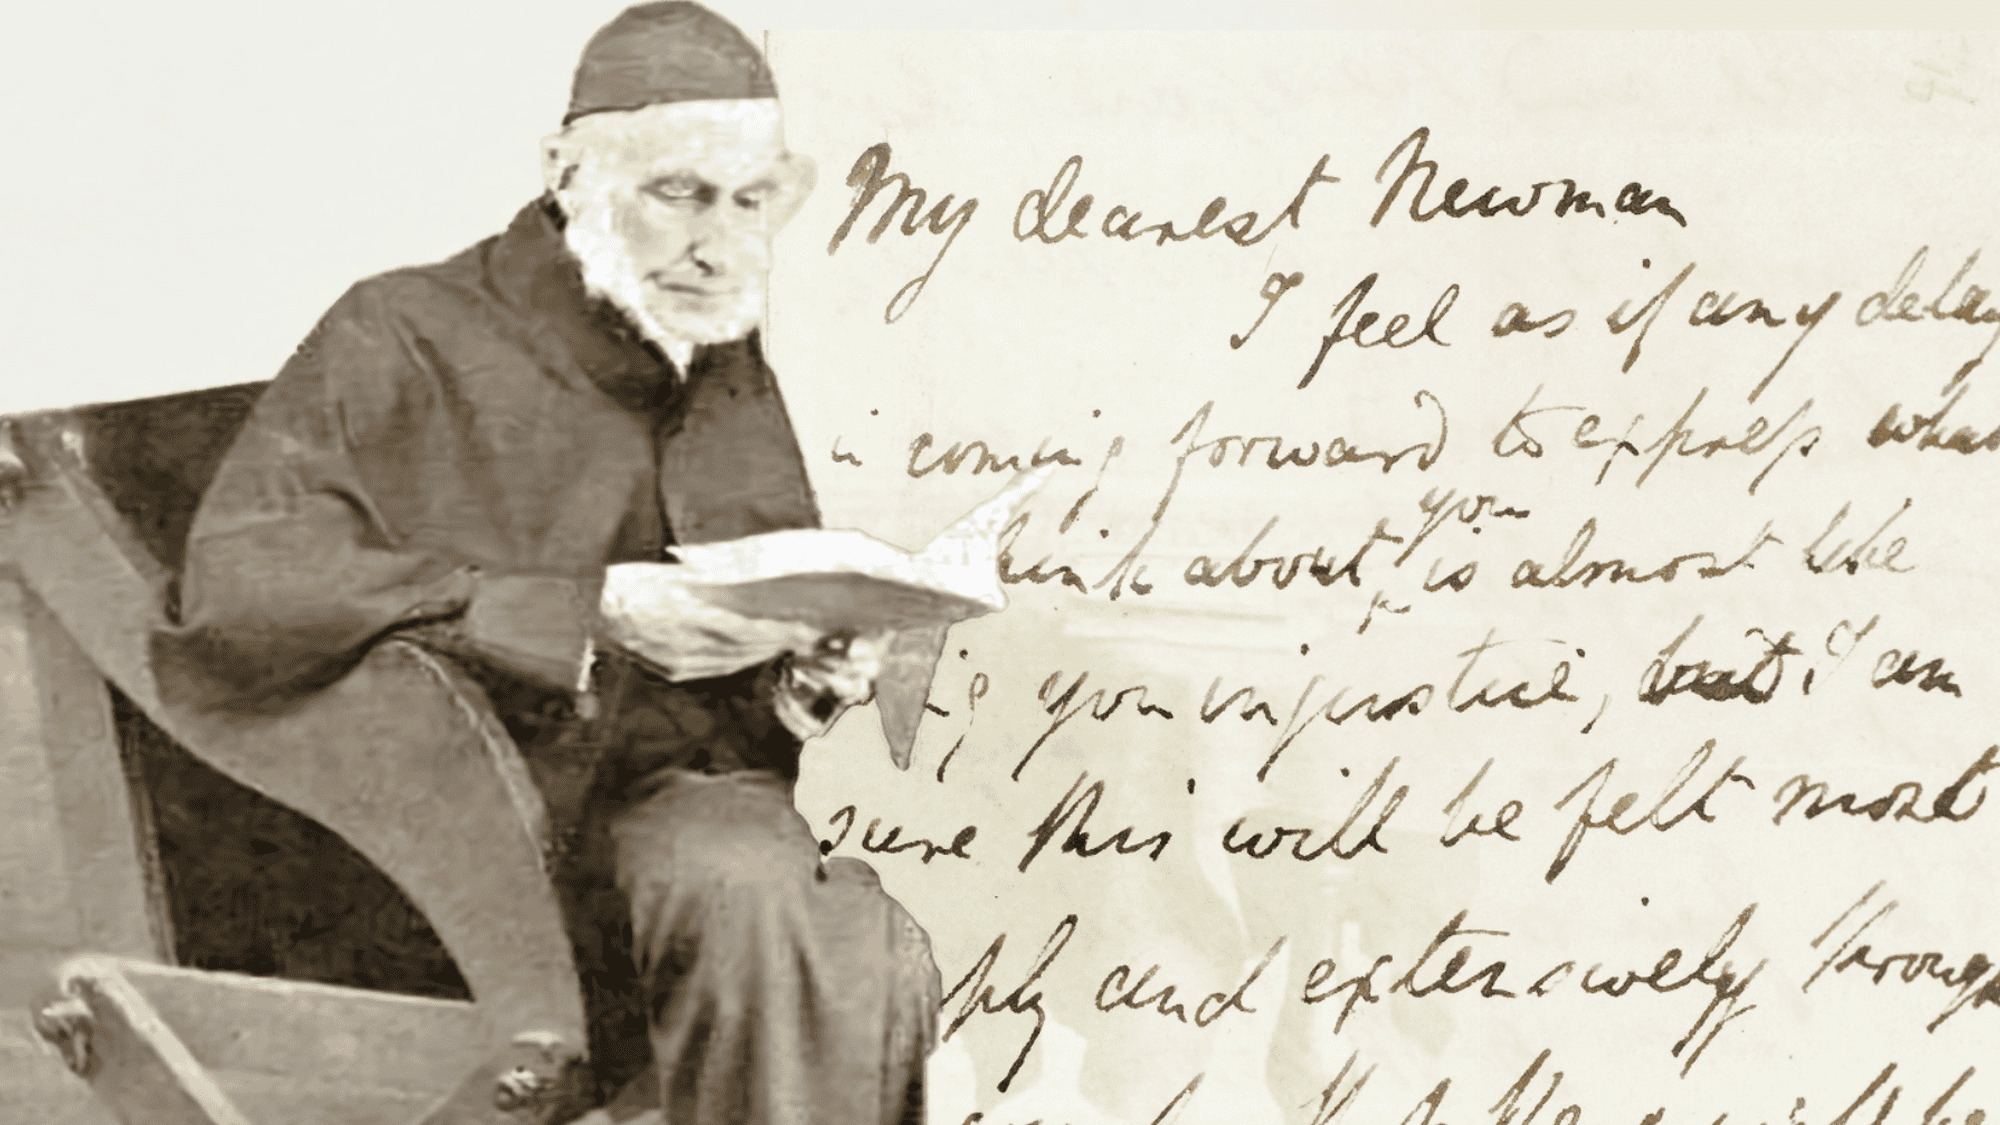 My dearest Newman
I feel as if any delay
in coming forward to express what
you
think about is almost like
you injustice, but I am
sure this will be felt most
and extensively through